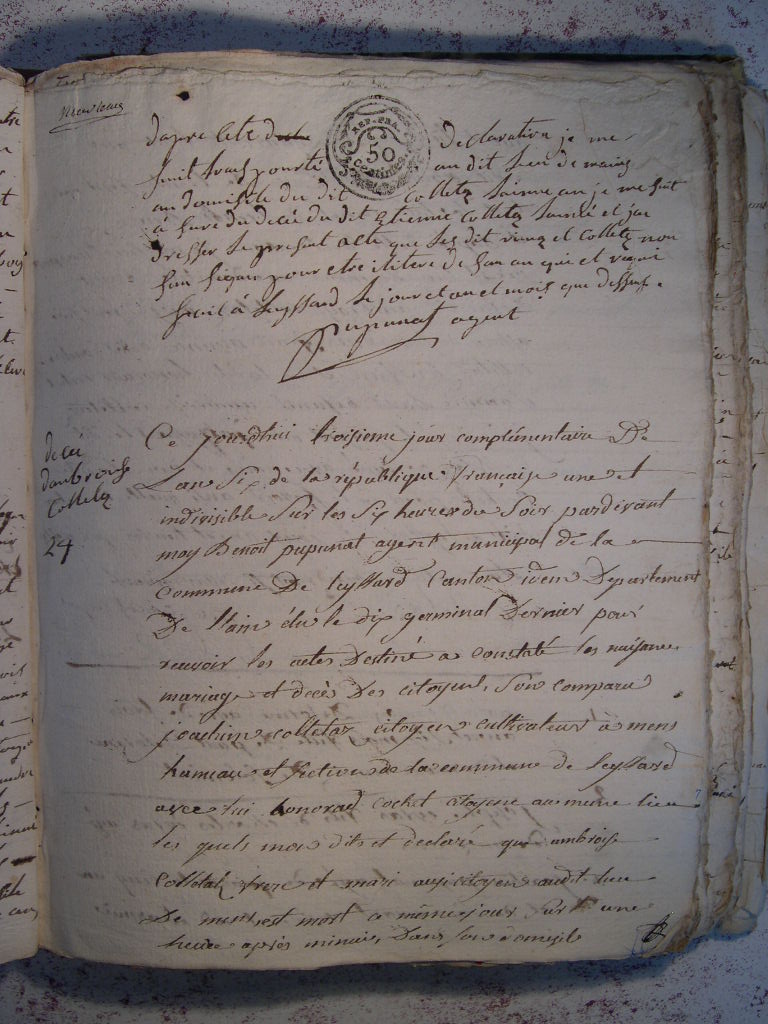 REP. FRA.
50
centimes
dapre cete Declaration je me
suit transporté au dit lieu de mains
au domisile du dit Colletaz je me suit
du decé du dit Etienne Colletaz et jai
Dresser le present acte que les dit et Colletaz non
seu signer pour etre ilitere de
fait à Leyssard le jour et an et mois que dessus.
pupunat agent
decé
dambroise
Colletaz
24
Ce jourdhui troisieme jour complémentaire De
Lan Six de la république française une et
indivisible Sur les Six heures du Soir pardevant
moy Benoit pupunat agent municipal de la
Commune De Leyssard Canton idem Departement
De Lain élu le dix germinal Dernier pour
recevoir les actes Destiné a constaté les naissance
mariage et décès Des citoyens, Son comparu
joachim colletaz citoyen cultivateur à mens
hameau et section de la commune de Leyssard
avec lui honorad cochet citoyene au meme lieu
les quels mon dits et declaré que ambroise
Colletaz frere et mari aussi citoyen audit lieu
De mens est mort a meme jour Sur une
heure après minuit, Dans son domisil